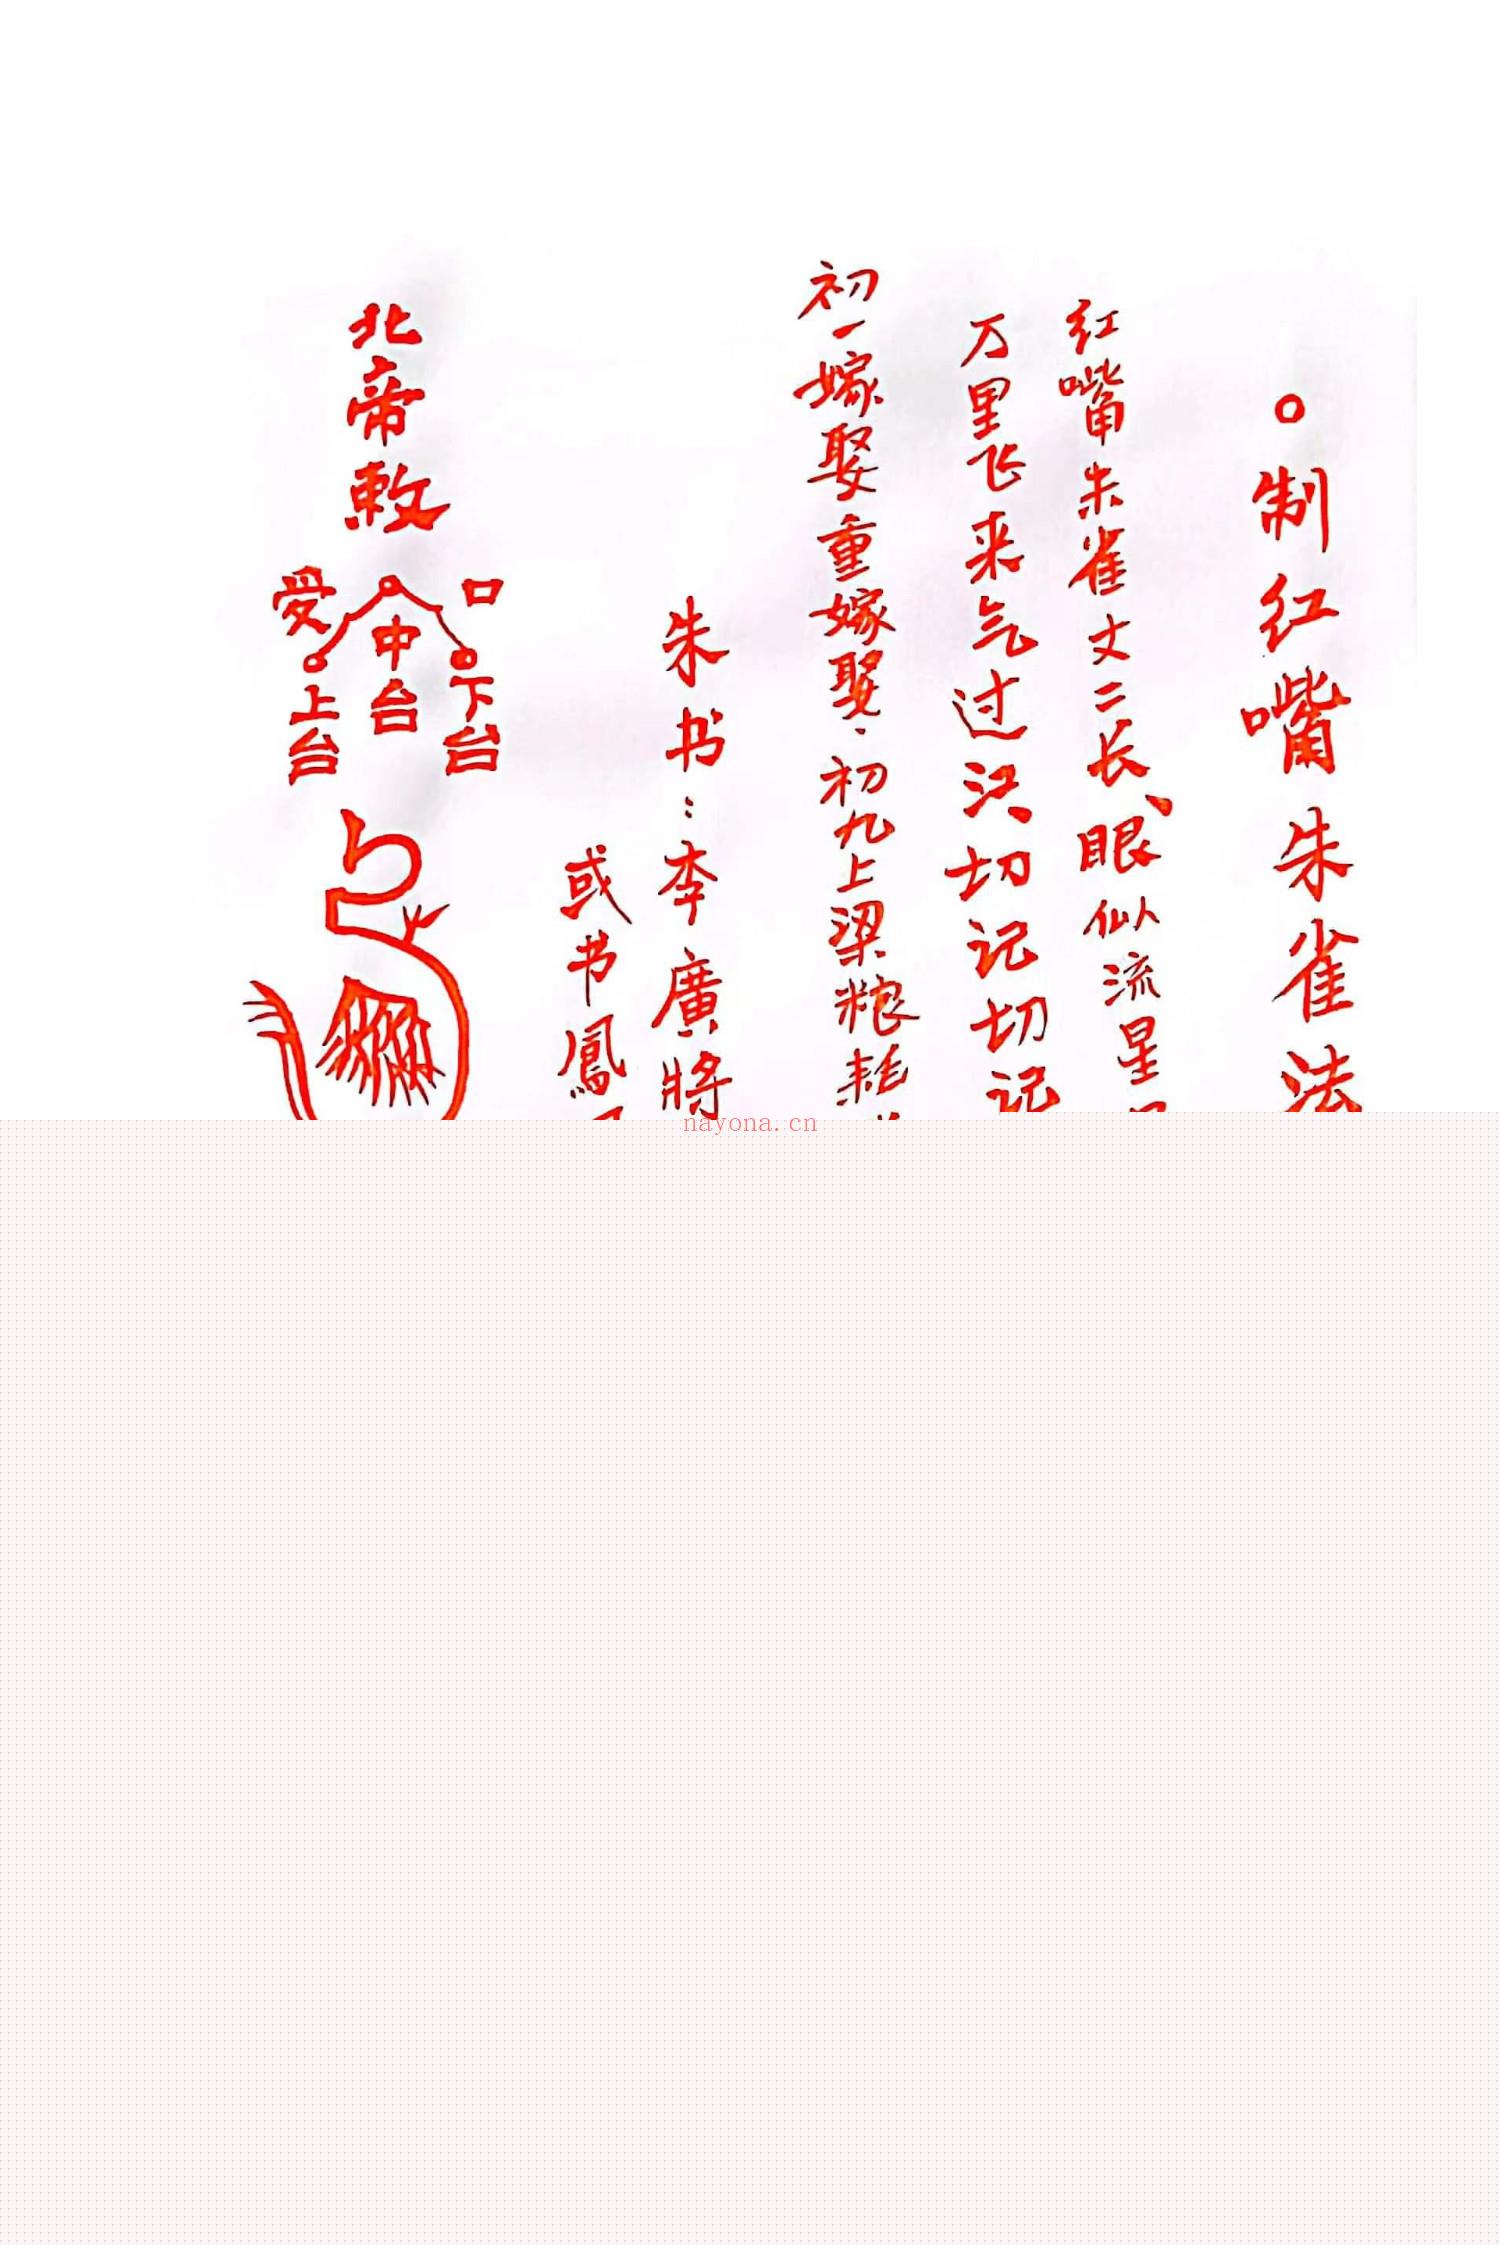 。制红嘴朱雀法
红嘴朱雀丈二长、眼似流星
万里飞来气过江、切记切记
初一嫁娶重嫁娶、初九上梁粮耗
朱书:李廣將
或书鳳
北帝敕
受 中台 口
上台 下台
nayona.cn